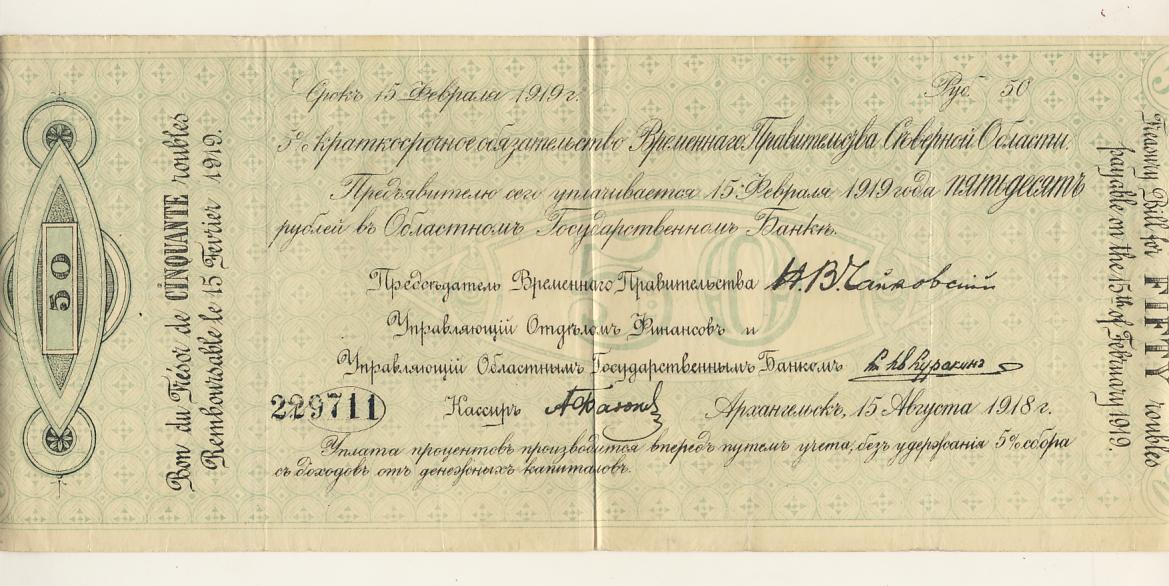 Срокъ 15 Февраля 1919 г.
Руб. 50
5% краткосрочное обязательство Временнаго Правительства Сѣверной Области.
Предъявителю сего уплачивается 15 Февраля 1919 года пятьдесятъ
рублей въ Областномъ Государственномъ Банкѣ.
50
Председатель Временнаго Правительства Н.В.Чайковский
Управляющій Отдѣломъ Финансовъ и
Управляющій Областнымъ Государственнымъ Банкомъ Куракинъ
229711
Кассиръ
Архангельскъ, 15 Августа 1918 г.
Уплата процентовъ производится впередъ путемъ учета, безъ удержанія 5% сбора
съ доходовъ отъ денежныхъ капиталовъ.
50
Bon du Trésor de CINQUANTE roubles
Remboursable le 15 Fevrier 1919.
Treasury Bill for FIFTY roubles
payable on the 15th of February 1919.